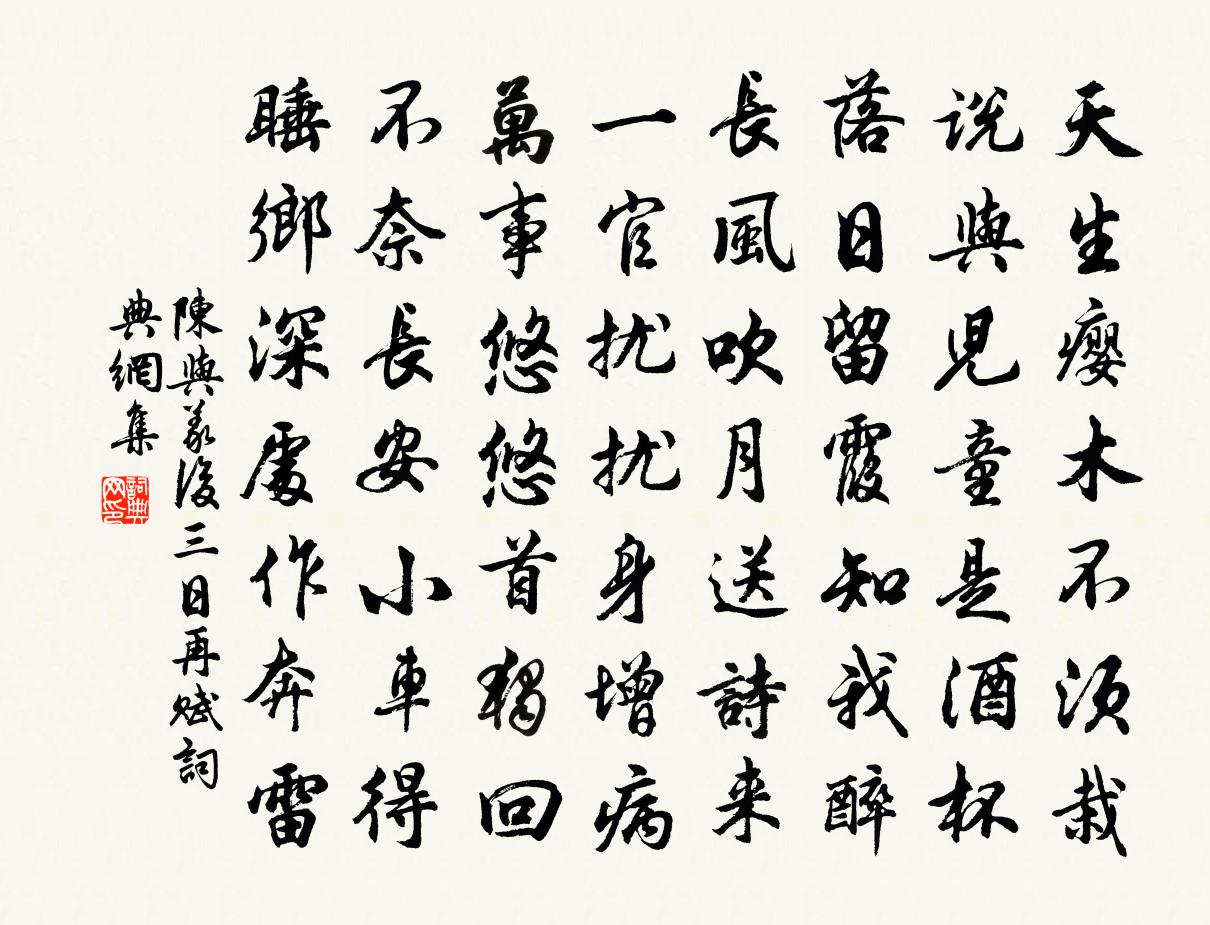 天生癭木不須栽
說與兒童是酒杯
落日留霞知我醉
長風吹月送詩来
一官扰扰身增病
萬事悠悠首獨回
不奈長安小車得
睡鄉深處作奔雷
陳與義後三日再賦詞
典網集
詞典网印